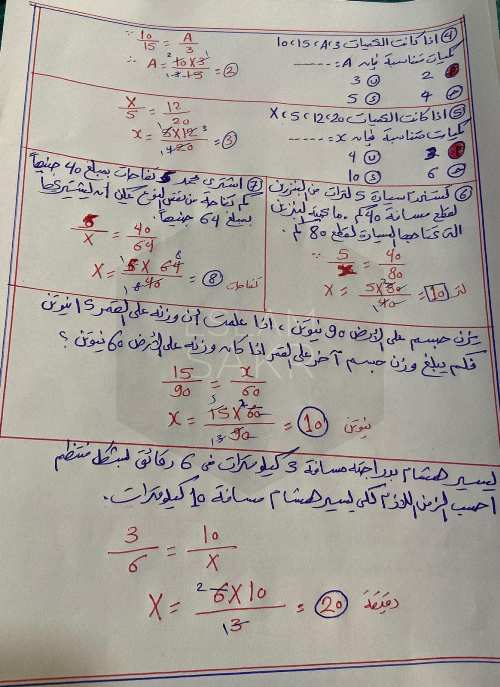 ④ اذا كانت الكميات 3، A، 15، 10
كميات متناسبة فإن A = ------
2
ب 3
ج 4
د 5
∵ 10/15 = A/3
∴ A = 10×3/15 = 2
⑤ اذا كانت الكميات 20، 12، 5، X
كميات متناسبة فإن x = ------
ب 4
ج 6
د 10
X/5 = 12/20
x = 5×12/20 = 3
⑥ تستهلك سيارة 5 لترات من البنزين
لقطع مسافة 40 كم. ما كمية البنزين
التى تحتاجها السيارة لقطع 80 كم.
∵ 5/x = 40/80
x = 5×80/40 = 10 لتر
⑦ اشترى محمد 5 تفاحات بمبلغ 40 جنيهاً
كم تفاحة من نفس النوع يمكن أن يشتريها
بمبلغ 64 جنيهاً.
5/x = 40/64
X = 5×64/40 = 8 تفاحات
يزن جسم على الأرض 90 نيوتن، اذا علمت أن وزنه على القمر 15 نيوتن
فكم يبلغ وزن جسم آخر على القمر اذا كان وزنه على الأرض 60 نيوتن ؟
15/90 = x/60
x = 15×60/90 = 10 نيوتن
يسير هشام بدراجته مسافة 3 كيلومترات فى 6 دقائق بشكل منتظم
احسب الزمن اللازم لكى يسير هشام مسافة 10 كيلومترات.
3/6 = 10/x
X = 6×10/3 = 20 دقيقة
SAKR